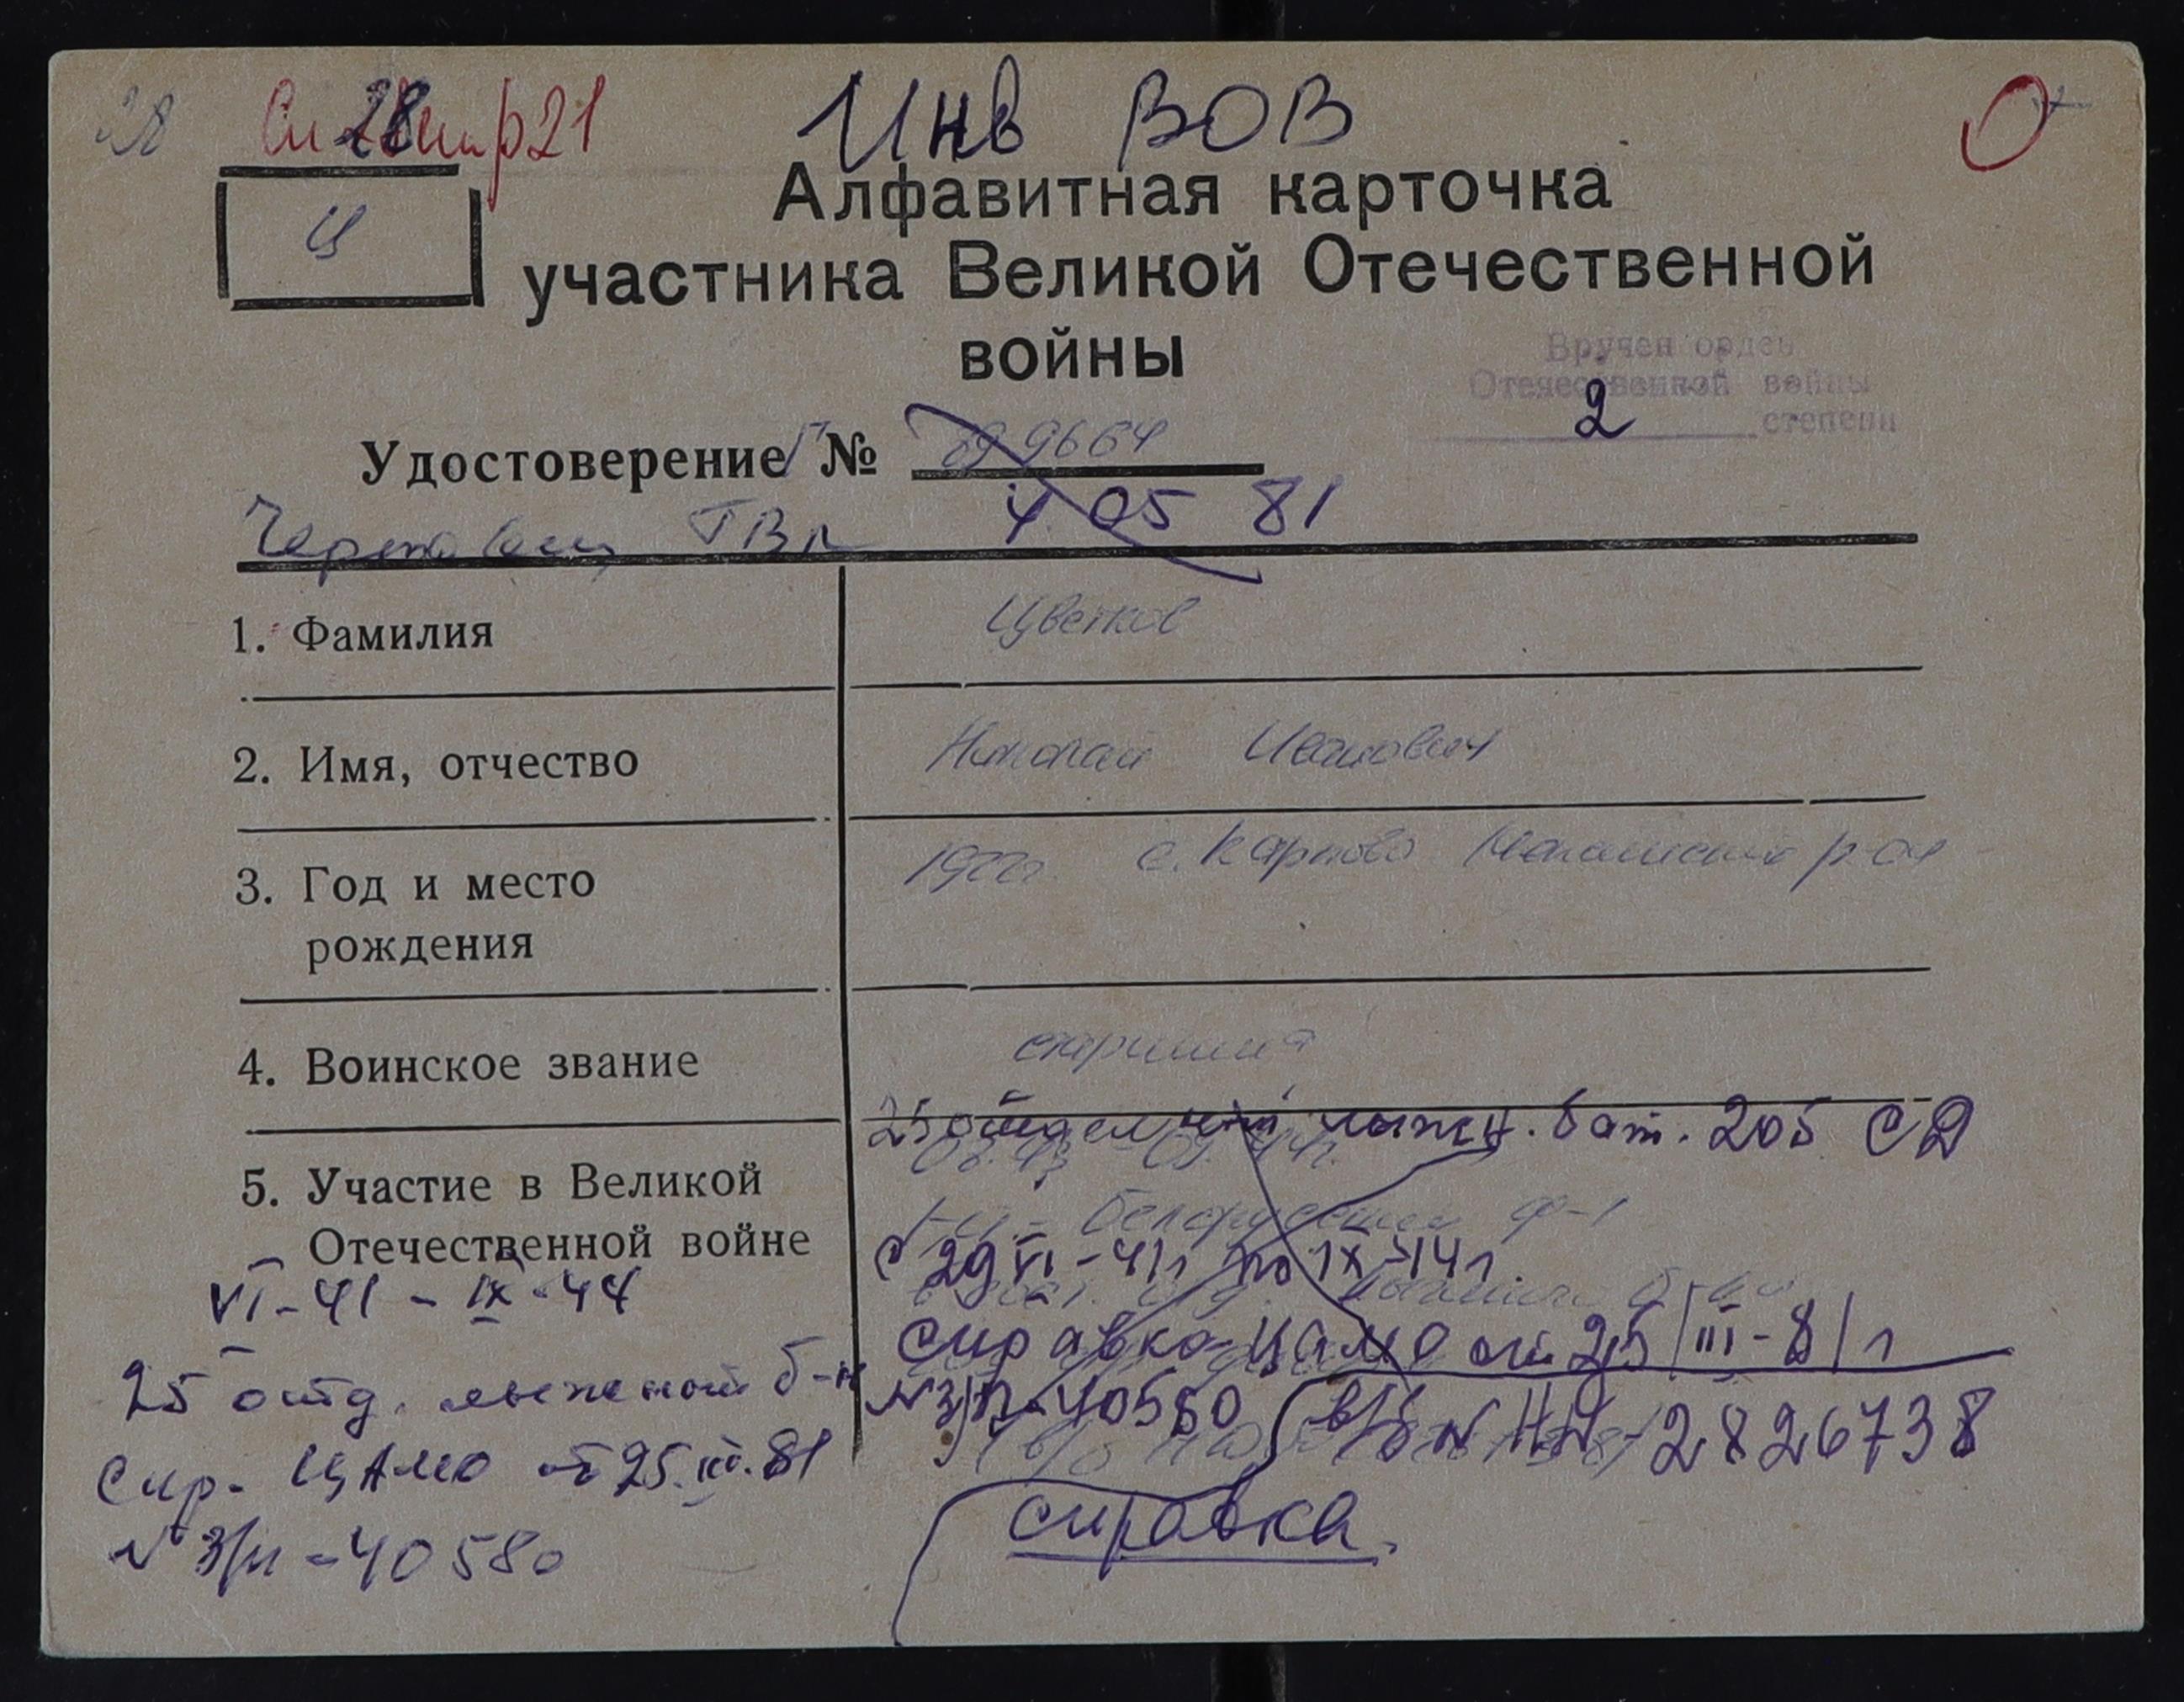 28 Ск 28 р21
Инв ВОВ
Ц
Алфавитная карточка
участника Великой Отечественной
войны
Вручен орден
Отечественной войны
2 степени
Удостоверение Г № 899664
Череповец ГВК 4 05 81
1. Фамилия Цветков
2. Имя, отчество Николай Иванович
3. Год и место
рождения
1922г. с. Карпово р-он
4. Воинское звание старшина
25 отдельный лыжн. бат. 205 СД
5. Участие в Великой
Отечественной войне
Белорусский ф-т
с 29 VI-41г по IX-44г.
VI-41 - IX-44
справка ЦАМО от 25/III-81г
25 отд. лыжной б-н
№3/п-40580 в/б № НН-2826738
Спр. ЦАМО от 25.III.81
№ 3/п-40580
справка.